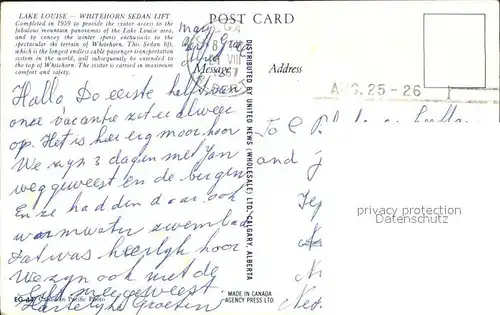 LAKE LOUISE — WHITEHORN SEDAN LIFT
Completed in 1959 to provide the visitor access to the
fabulous mountain panoramas of the Lake Louise area,
and to convey the winter sports enthusiasts to the
spectacular ski terrain of Whitehorn. This Sedan lift,
which is the longest endless cable passenger transportation
system in the world, will subsequently be extended to
the top of Whitehorn. The visitor is carried in maximum
comfort and safety.
POST CARD
Mary
Message
Address
25-26
Hallo, De eerste helft van
onze vacantie zit er al weer
op. Het is hier erg mooi hoor
We zijn 3 dagen met Jan
weggeweest en de bergen
En ze hadden daar ook
warmwater zwembad
Dat was heerlijk hoor
We zijn ook met de
Lift meegeweest
Hartelijke Groeten
DISTRIBUTED BY UNITED NEWS (WHOLESALE) LTD., CALGARY, ALBERTA
To
and
privacy protection
Datenschutz
Canadian Pacific Photo
MADE IN CANADA
AGENCY PRESS LTD.